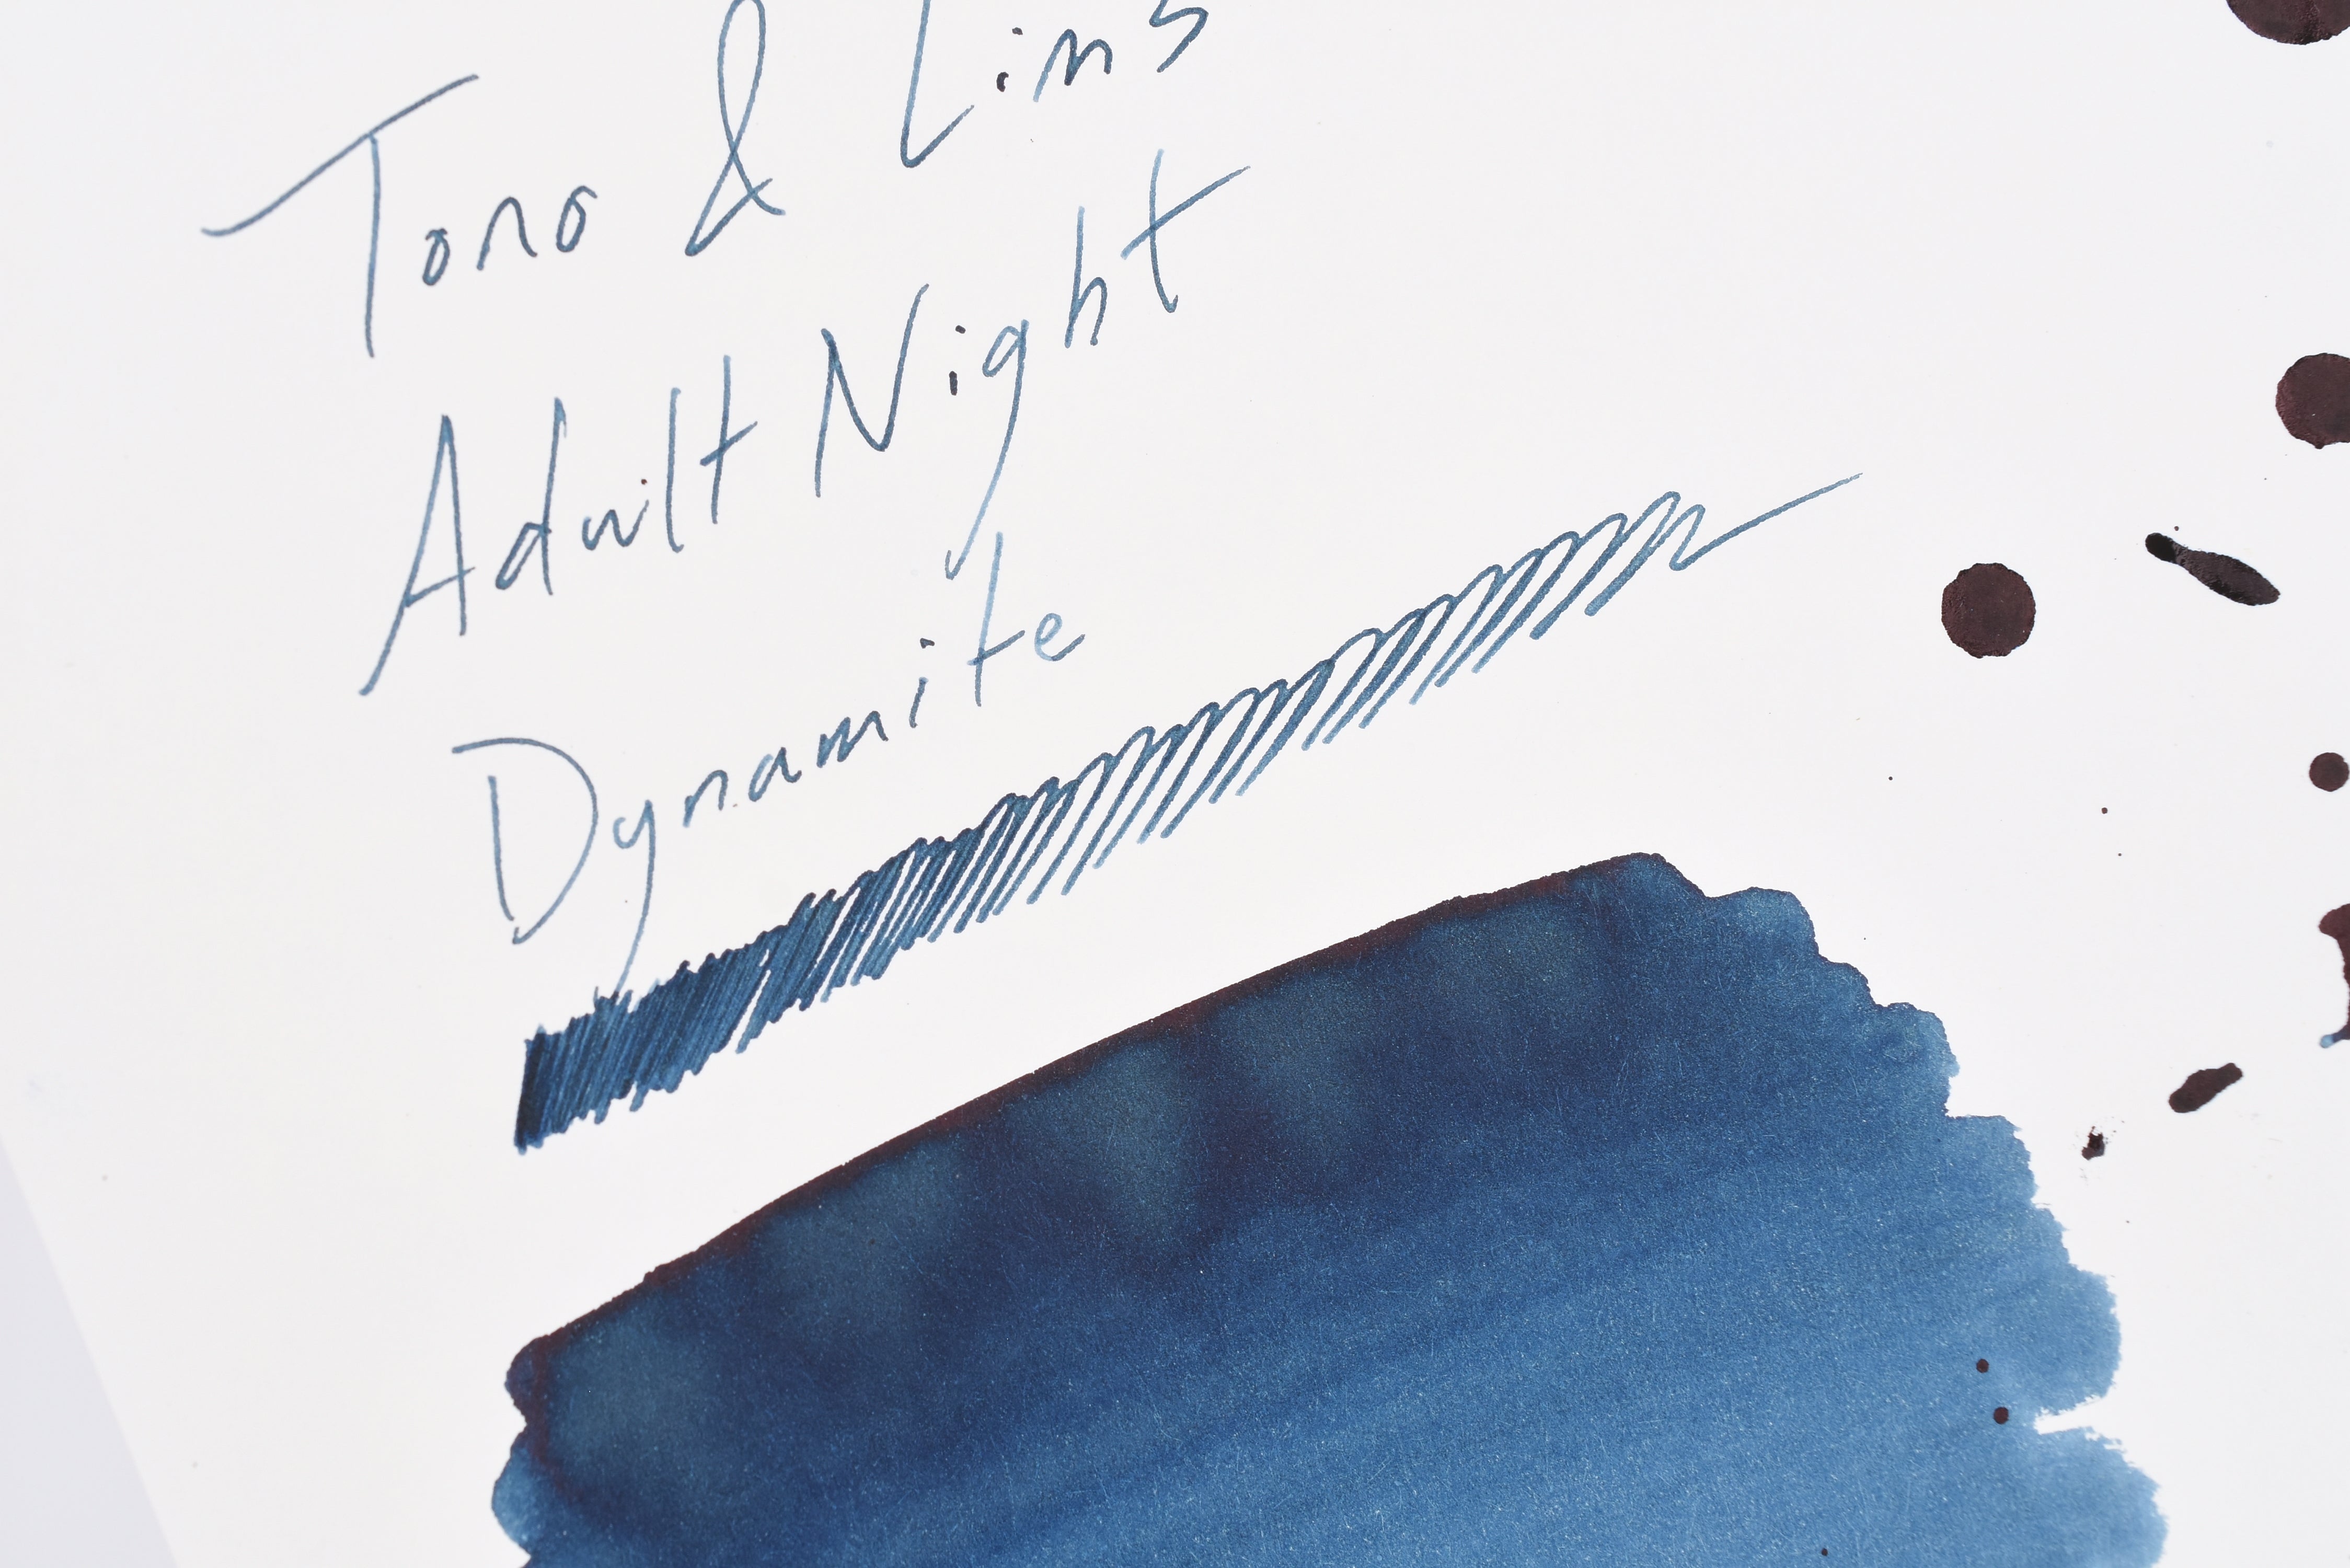 Tono & Lims
Adult Night
Dynamite